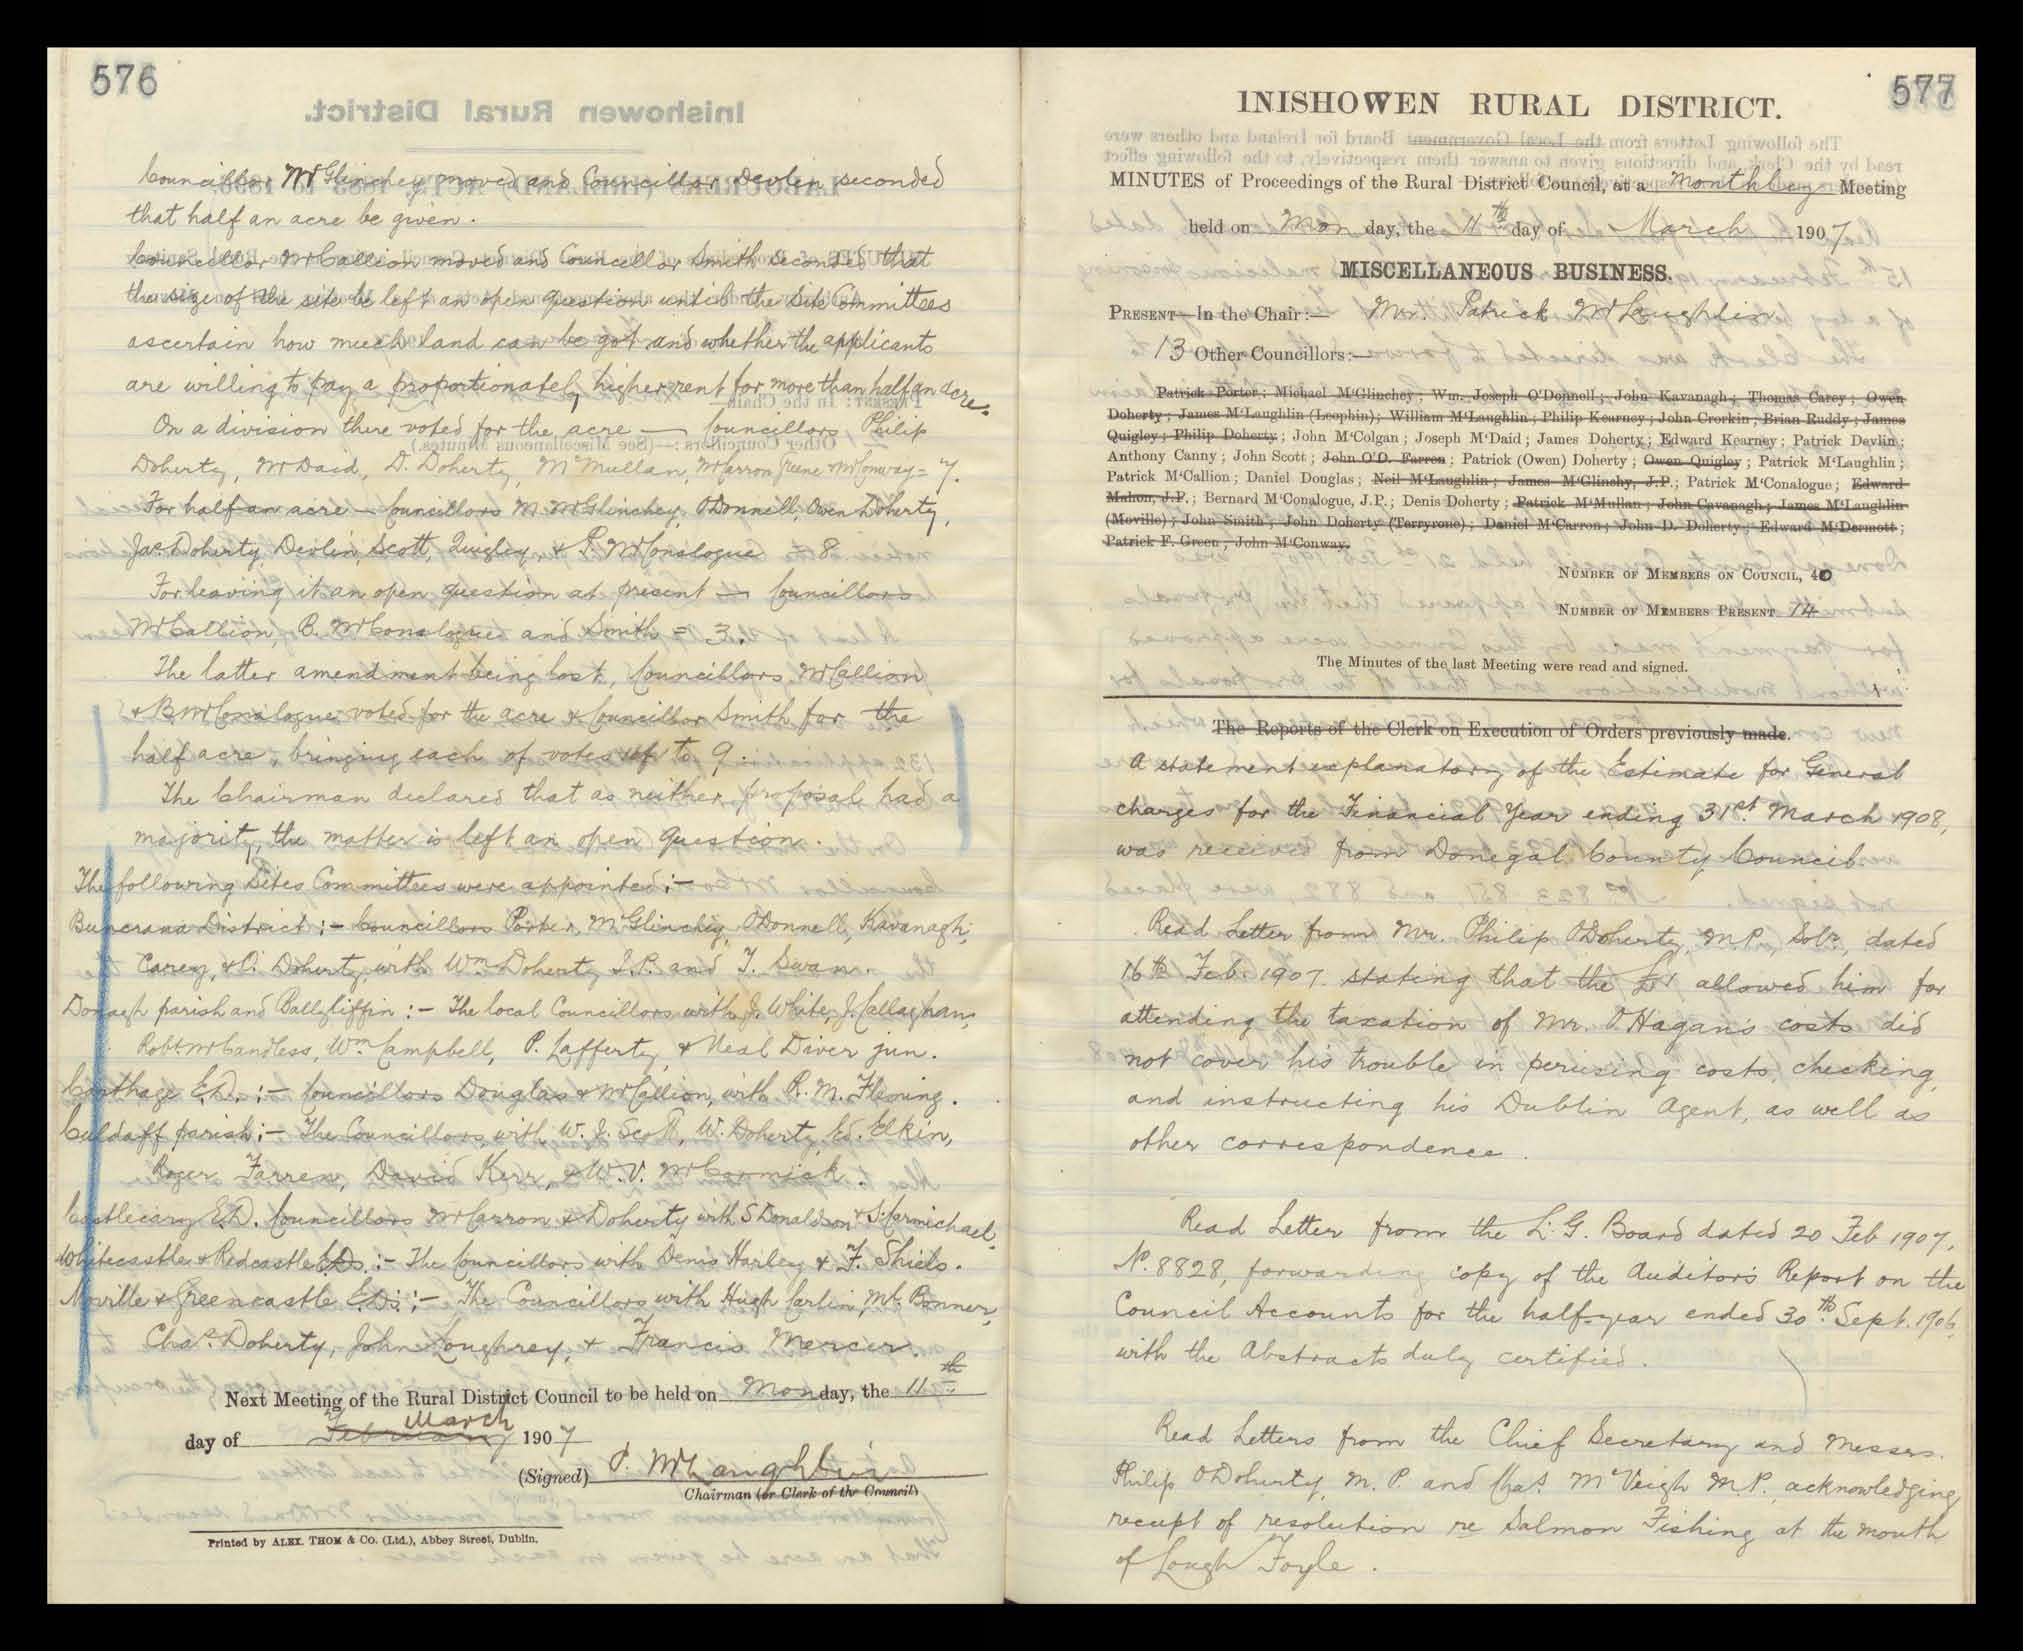 576
Councillor McGlinchey moved and Councillor Devlin seconded
that half an acre be given.
Councillor McCallion moved and Councillor Smith seconded that
the size of the site be left an open question until the Site Committees
ascertain how much land can be got and whether the applicants
are willing to pay a proportionately higher rent for more than half an acre.
On a division there voted for the acre — Councillors Philip
Doherty, McDaid, D. Doherty, McMullan, McCarron Greene & McConway = 7.
For half an acre — Councillors M. McGlinchey, O'Donnell, Owen Doherty,
Jas. Doherty, Devlin, Scott, Quigley, & P. McConalogue 8
For leaving it an open question at present — Councillors
McCallion, B. McConalogue and Smith = 3.
The latter amendment being lost, Councillors McCallion
& B. McConalogue voted for the acre & Councillor Smith for the
half acre, bringing each of votes up to 9.
The Chairman declared that as neither proposal had a
majority, the matter is left an open question.
The following Sites Committees were appointed :-
Buncrana District :- Councillors Porter, McGlinchey, O'Donnell, Kavanagh,
Carey, & O. Doherty, with Wm Doherty J.P. and T. Swan.
Donagh parish and Ballyliffin :- The local Councillors with J. White, J. Callaghan,
Robt. McCandless, Wm Campbell, P. Lafferty, & Neal Diver jun.
Carthage E.D. :- Councillors Douglas & McCallion, with R. M. Fleming.
Culdaff parish :- The Councillors, with W. J. Scott, W. Doherty, Ed. Elkin,
Roger Farren, David Kerr, & W. V. McCormick.
Castlecary E.D. Councillors McCarron & Doherty with S Donaldson & J. Carmichael.
Whitecastle & Redcastle E.Ds. :- The Councillors with Denis Harley & F. Shiels.
Moville & Greencastle E.Ds. :- The Councillors with Hugh Carlin, Ml. Bonner,
Chas. Doherty, John Loughrey, & Francis Mercer.
Next Meeting of the Rural District Council to be held on Monday, the 11th
March
day of February 1907
(Signed) P. McLaughlin
Chairman (or Clerk of the Council)
Printed by ALEX. THOM & CO. (Ltd.), Abbey Street, Dublin.
577
INISHOWEN RURAL DISTRICT.
MINUTES of Proceedings of the Rural District Council, at a Monthly Meeting
held on Monday, the 11th day of March 1907
MISCELLANEOUS BUSINESS.
PRESENT—In the Chair:— Mr. Patrick McLaughlin
13 Other Councillors:—
Patrick Porter; Michael M'Glinchey; Wm. Joseph O'Donnell; John Kavanagh; Thomas Carey; Owen
Doherty; James M'Laughlin (Leophin); William M'Laughlin; Philip Kearney; John Crorkin; Brian Ruddy; James
Quigley; Philip Doherty; John M'Colgan; Joseph M'Daid; James Doherty; Edward Kearney; Patrick Devlin;
Anthony Canny; John Scott; John O'D. Farren; Patrick (Owen) Doherty; Owen Quigley; Patrick M'Laughlin;
Patrick M'Callion; Daniel Douglas; Neil M'Laughlin; James M'Glinchy, J.P.; Patrick M'Conalogue; Edward
Mahon, J.P.; Bernard M'Conalogue, J.P.; Denis Doherty; Patrick M'Mullan; John Cavanagh; James M'Laughlin
(Moville); John Smith; John Doherty (Terryrone); Daniel M'Carron; John D. Doherty; Edward M'Dermott;
Patrick F. Green; John M'Conway.
NUMBER OF MEMBERS ON COUNCIL, 40
NUMBER OF MEMBERS PRESENT 14
The Minutes of the last Meeting were read and signed.
The Reports of the Clerk on Execution of Orders previously made.
A statement explanatory of the Estimate for General
charges for the Financial Year ending 31st March 1908,
was received from Donegal County Council.
Read Letter from Mr. Philip O'Doherty, M.P., Solr., dated
16th Feb. 1907 stating that the £1 allowed him for
attending the taxation of Mr. O'Hagan's costs did
not cover his trouble in perusing costs, checking,
and instructing his Dublin Agent, as well as
other correspondence.
Read Letter from the L. G. Board dated 20 Feb 1907,
No. 8828, forwarding copy of the Auditor's Report on the
Council Accounts for the half-year ended 30th Sept. 1906,
with the Abstracts duly certified.
Read Letters from the Chief Secretary and Messrs.
Philip O'Doherty, M. P. and Chas. McVeigh M.P., acknowledging
receipt of resolution re Salmon Fishing at the mouth
of Lough Foyle.